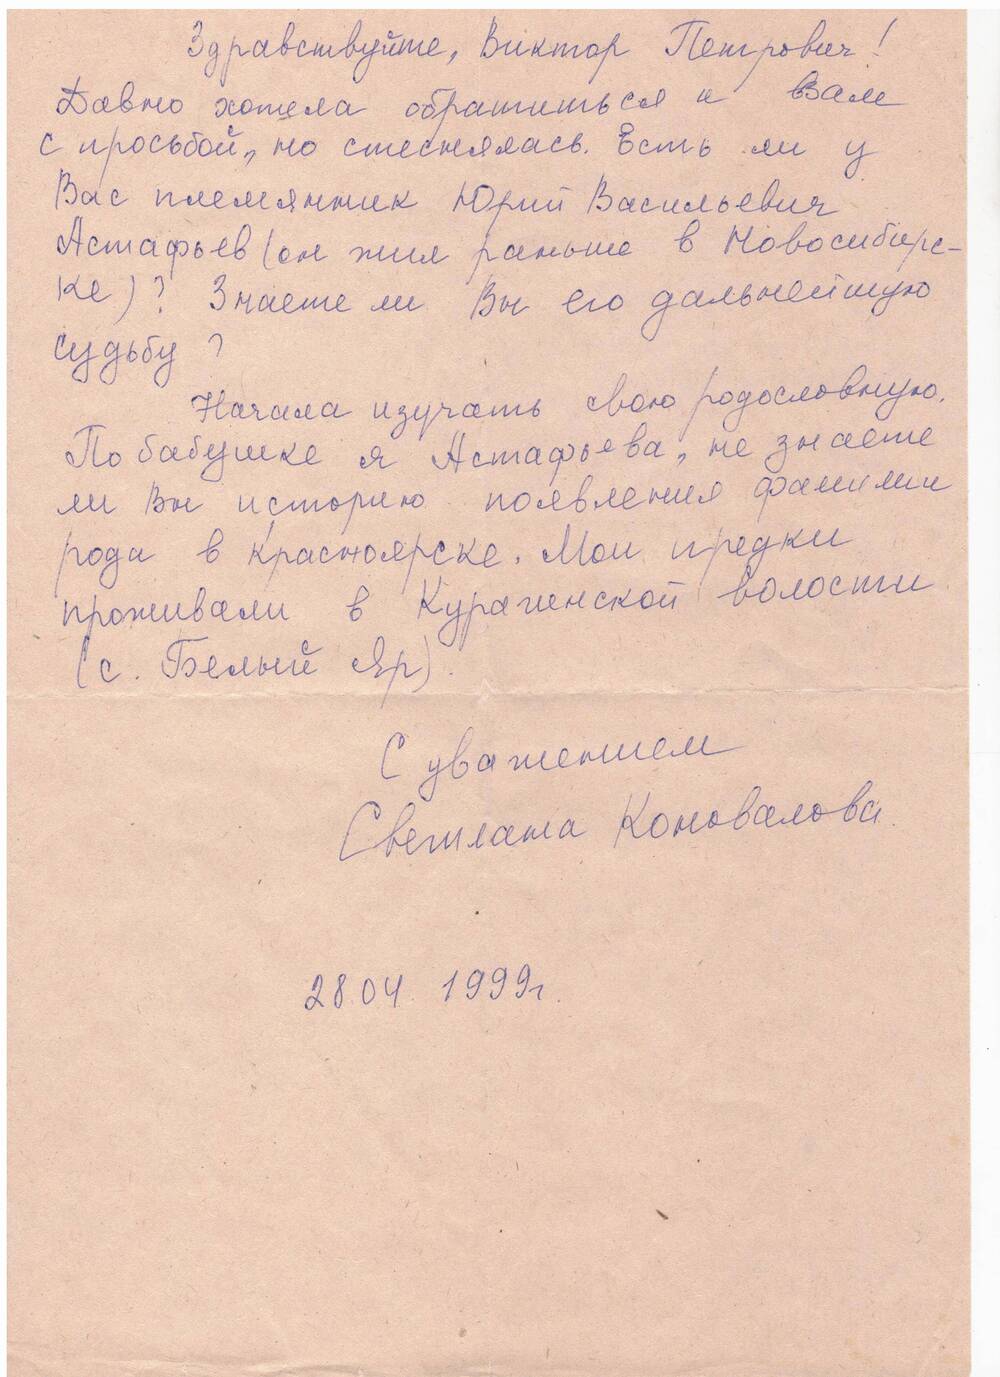 Здравствуйте, Виктор Петрович!
Давно хотела обратиться к Вам
с просьбой, но стеснялась. Есть ли у
Вас племянник Юрий Васильевич
Астафьев (он жил раньше в Новосибирс-
ке)? Знаете ли Вы его дальнейшую
судьбу?
Начала изучать свою родословную.
По бабушке я Астафьева, не знаете
ли Вы историю появления фамилии
рода в Красноярске. Мои предки
проживали в Курагинской волости
(с. Белый Яр).
С уважением
Светлана Коновалова.
28.04 1999г.